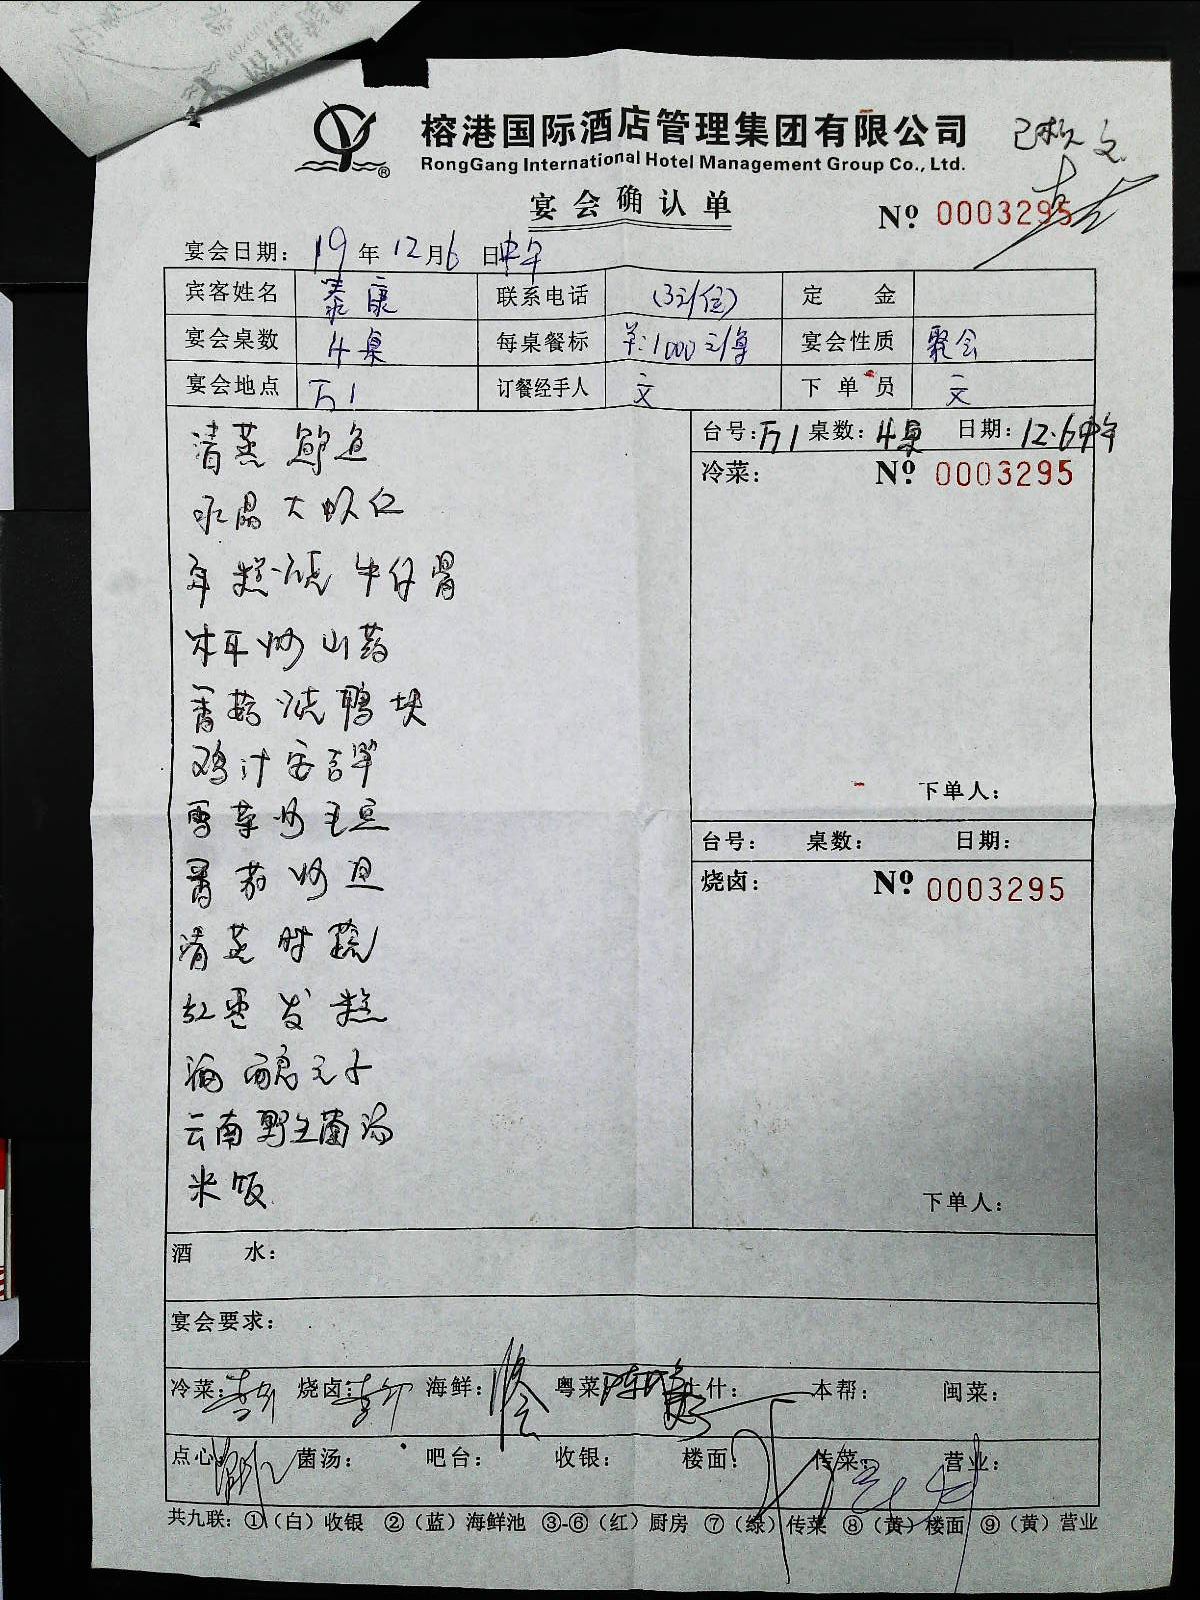 榕港国际酒店管理集团有限公司
RongGang International Hotel Management Group Co., Ltd.
宴会确认单
№ 0003295
宴会日期: 19 年 12 月 6 日 中午
宾客姓名 泰康 联系电话 (3元/位) 定 金
宴会桌数 4桌 每桌餐标 1000元/桌 宴会性质 聚会
宴会地点 万1 订餐经手人 文 下单员 文
台号: 万1 桌数: 4桌 日期: 12.6中午
冷菜: № 0003295
清蒸鲈鱼
水晶大虾仁
年糕烧牛仔骨
木耳炒山药
香菇烧鸭块
鸡汁
雪菜炒毛豆
番茄炒旦
清炒时蔬
红枣发糕
酒酿元子
云南野生菌汤
米饭
下单人:
台号: 桌数: 日期:
烧卤: № 0003295
下单人:
酒 水:
宴会要求:
冷菜: 烧卤: 海鲜: 粤菜: 上什: 本帮: 闽菜:
点心: 菌汤: 吧台: 收银: 楼面: 传菜: 营业:
共九联: ①(白)收银 ②(蓝)海鲜池 ③-⑥(红)厨房 ⑦(绿)传菜 ⑧(黄)楼面 ⑨(黄)营业